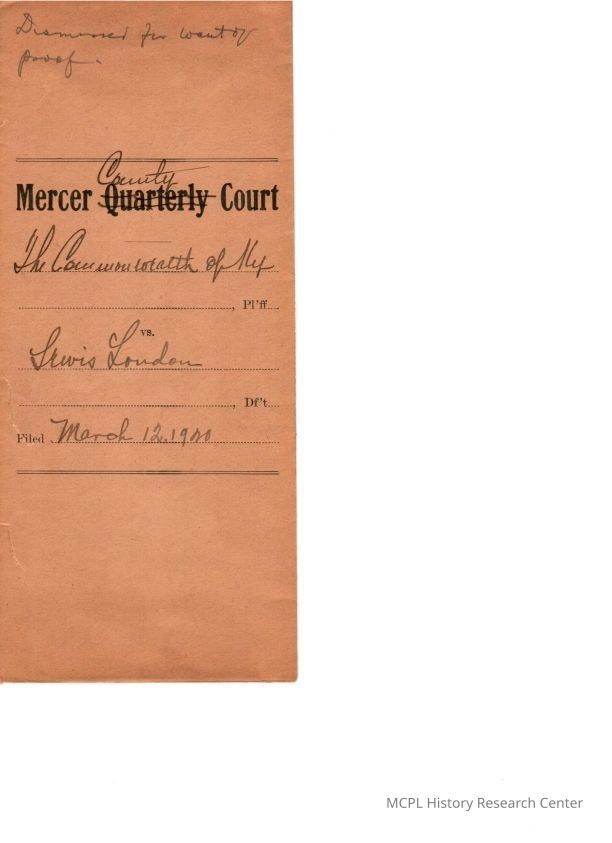 Dismissed for want of
proof.
County
Mercer Quarterly Court
The Commonwealth of Ky
, Pl'ff.
vs.
Lewis London
, Df't.
Filed March 12. 1920
MCPL History Research Center